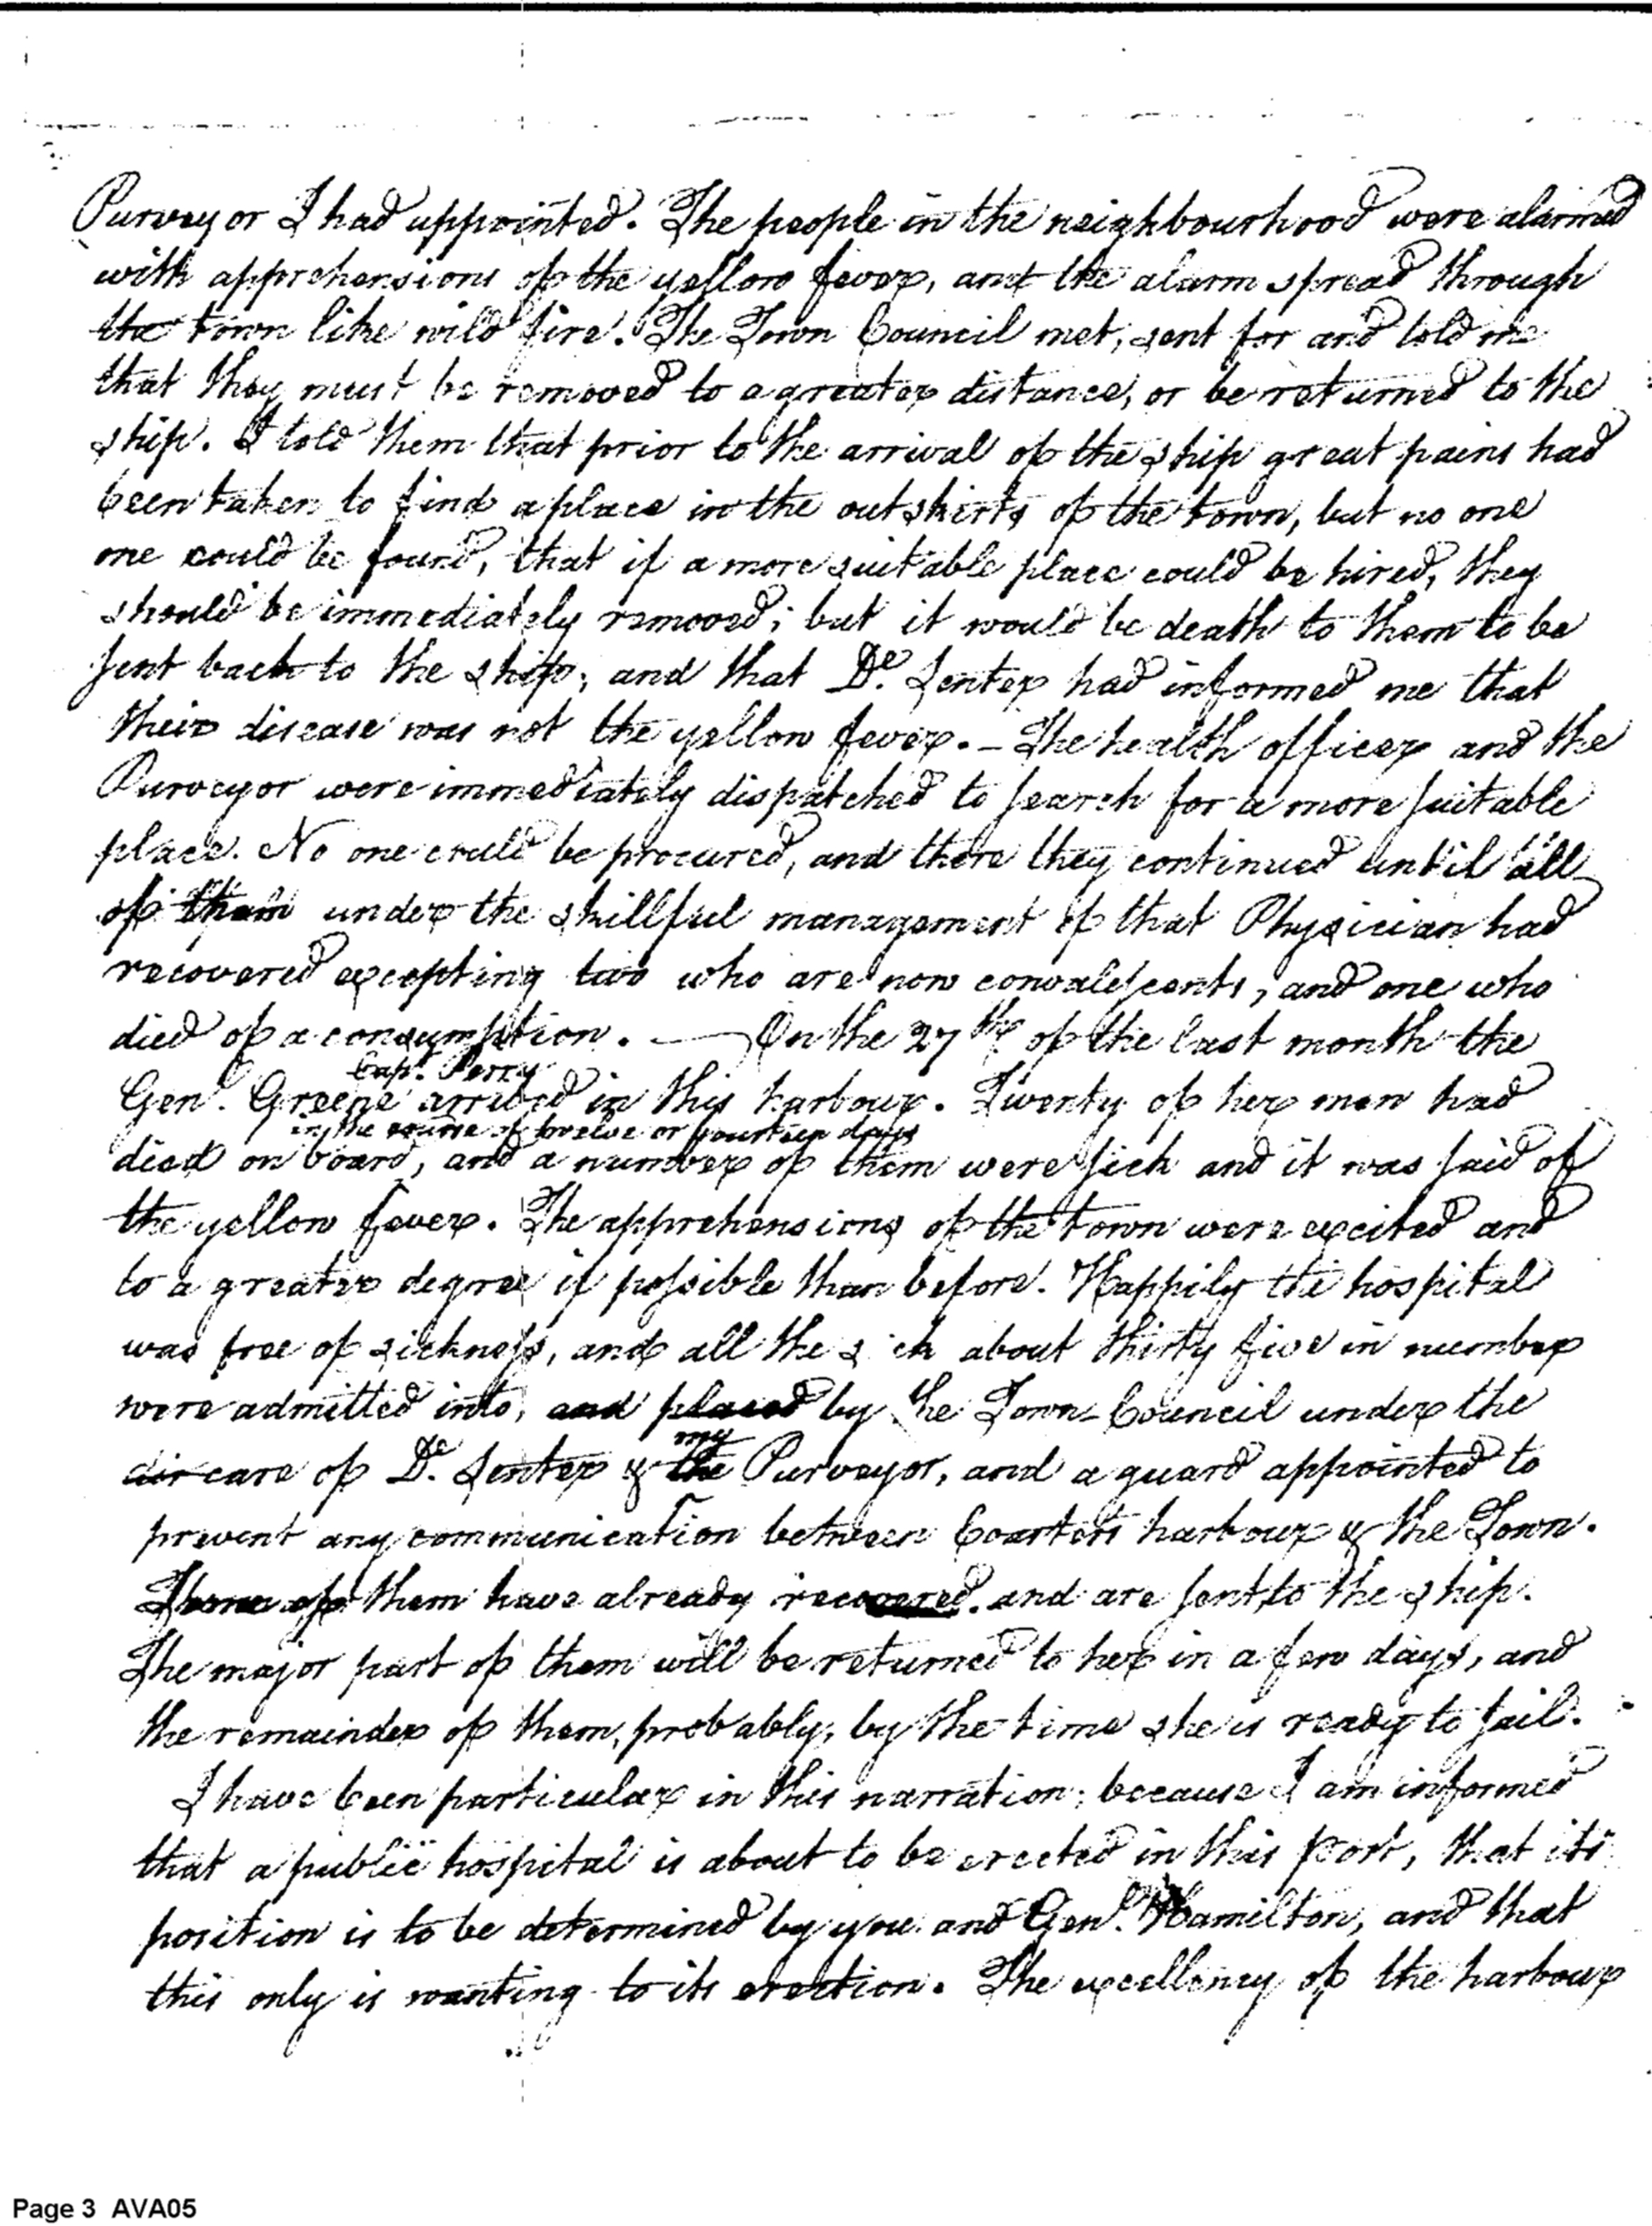 Purveyor I had appointed. The people in the neighbourhood were alarmed
with apprehensions of the yellow fever, and the alarm spread through
the town like wild fire. The Town Council met, sent for and told me
that they must be removed to a greater distance, or be returned to the
ship. I told them that prior to the arrival of the ship great pains had
been taken to find a place in the outskirts of the town, but no one
one could be found, that if a more suitable place could be hired, they
should be immediately removed; but it would be death to them to be
sent back to the ship; and that Dr. Senter had informed me that
their disease was not the yellow fever. — The health officer and the
Purveyor were immediately dispatched to search for a more suitable
place. No one could be procured, and there they continued until all
of them under the skillful management of that Physician had
recovered excepting two who are now convalescents, and one who
died of a consumption. — On the 27th of the last month the
Capt. Perry
Genl. Greene arrived in this harbour. Twenty of her men had
in the course of twelve or fourteen days
died on board, and a number of them were sick and it was said of
the yellow fever. The apprehensions of the town were excited and
to a greater degree if possible than before. Happily the hospital
was free of sickness, and all the sick about thirty five in number
were admitted into, and placed by the Town-Council under the
my
care of Dr. Senter & the Purveyor, and a guard appointed to
prevent any communication between Coasters harbour & the Town.
Some of them have already recovered. and are sent to the ship.
The major part of them will be returned to her in a few days, and
the remainder of them, probably, by the time she is ready to sail.
I have been particular in this narration, because I am informed
that a public hospital is about to be erected in this port, that its
position is to be determined by you and Genl. Hamilton, and that
this only is wanting to its erection. The excellency of the harbour
Page 3 AVA05